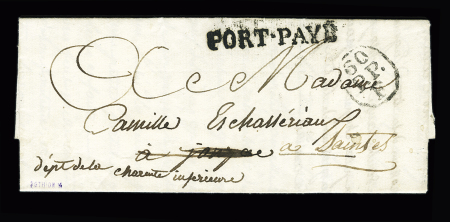 PORT-PAYÉ
A Madame
Camille Eschassériau
à Saintes
dépt de la
charente inférieure